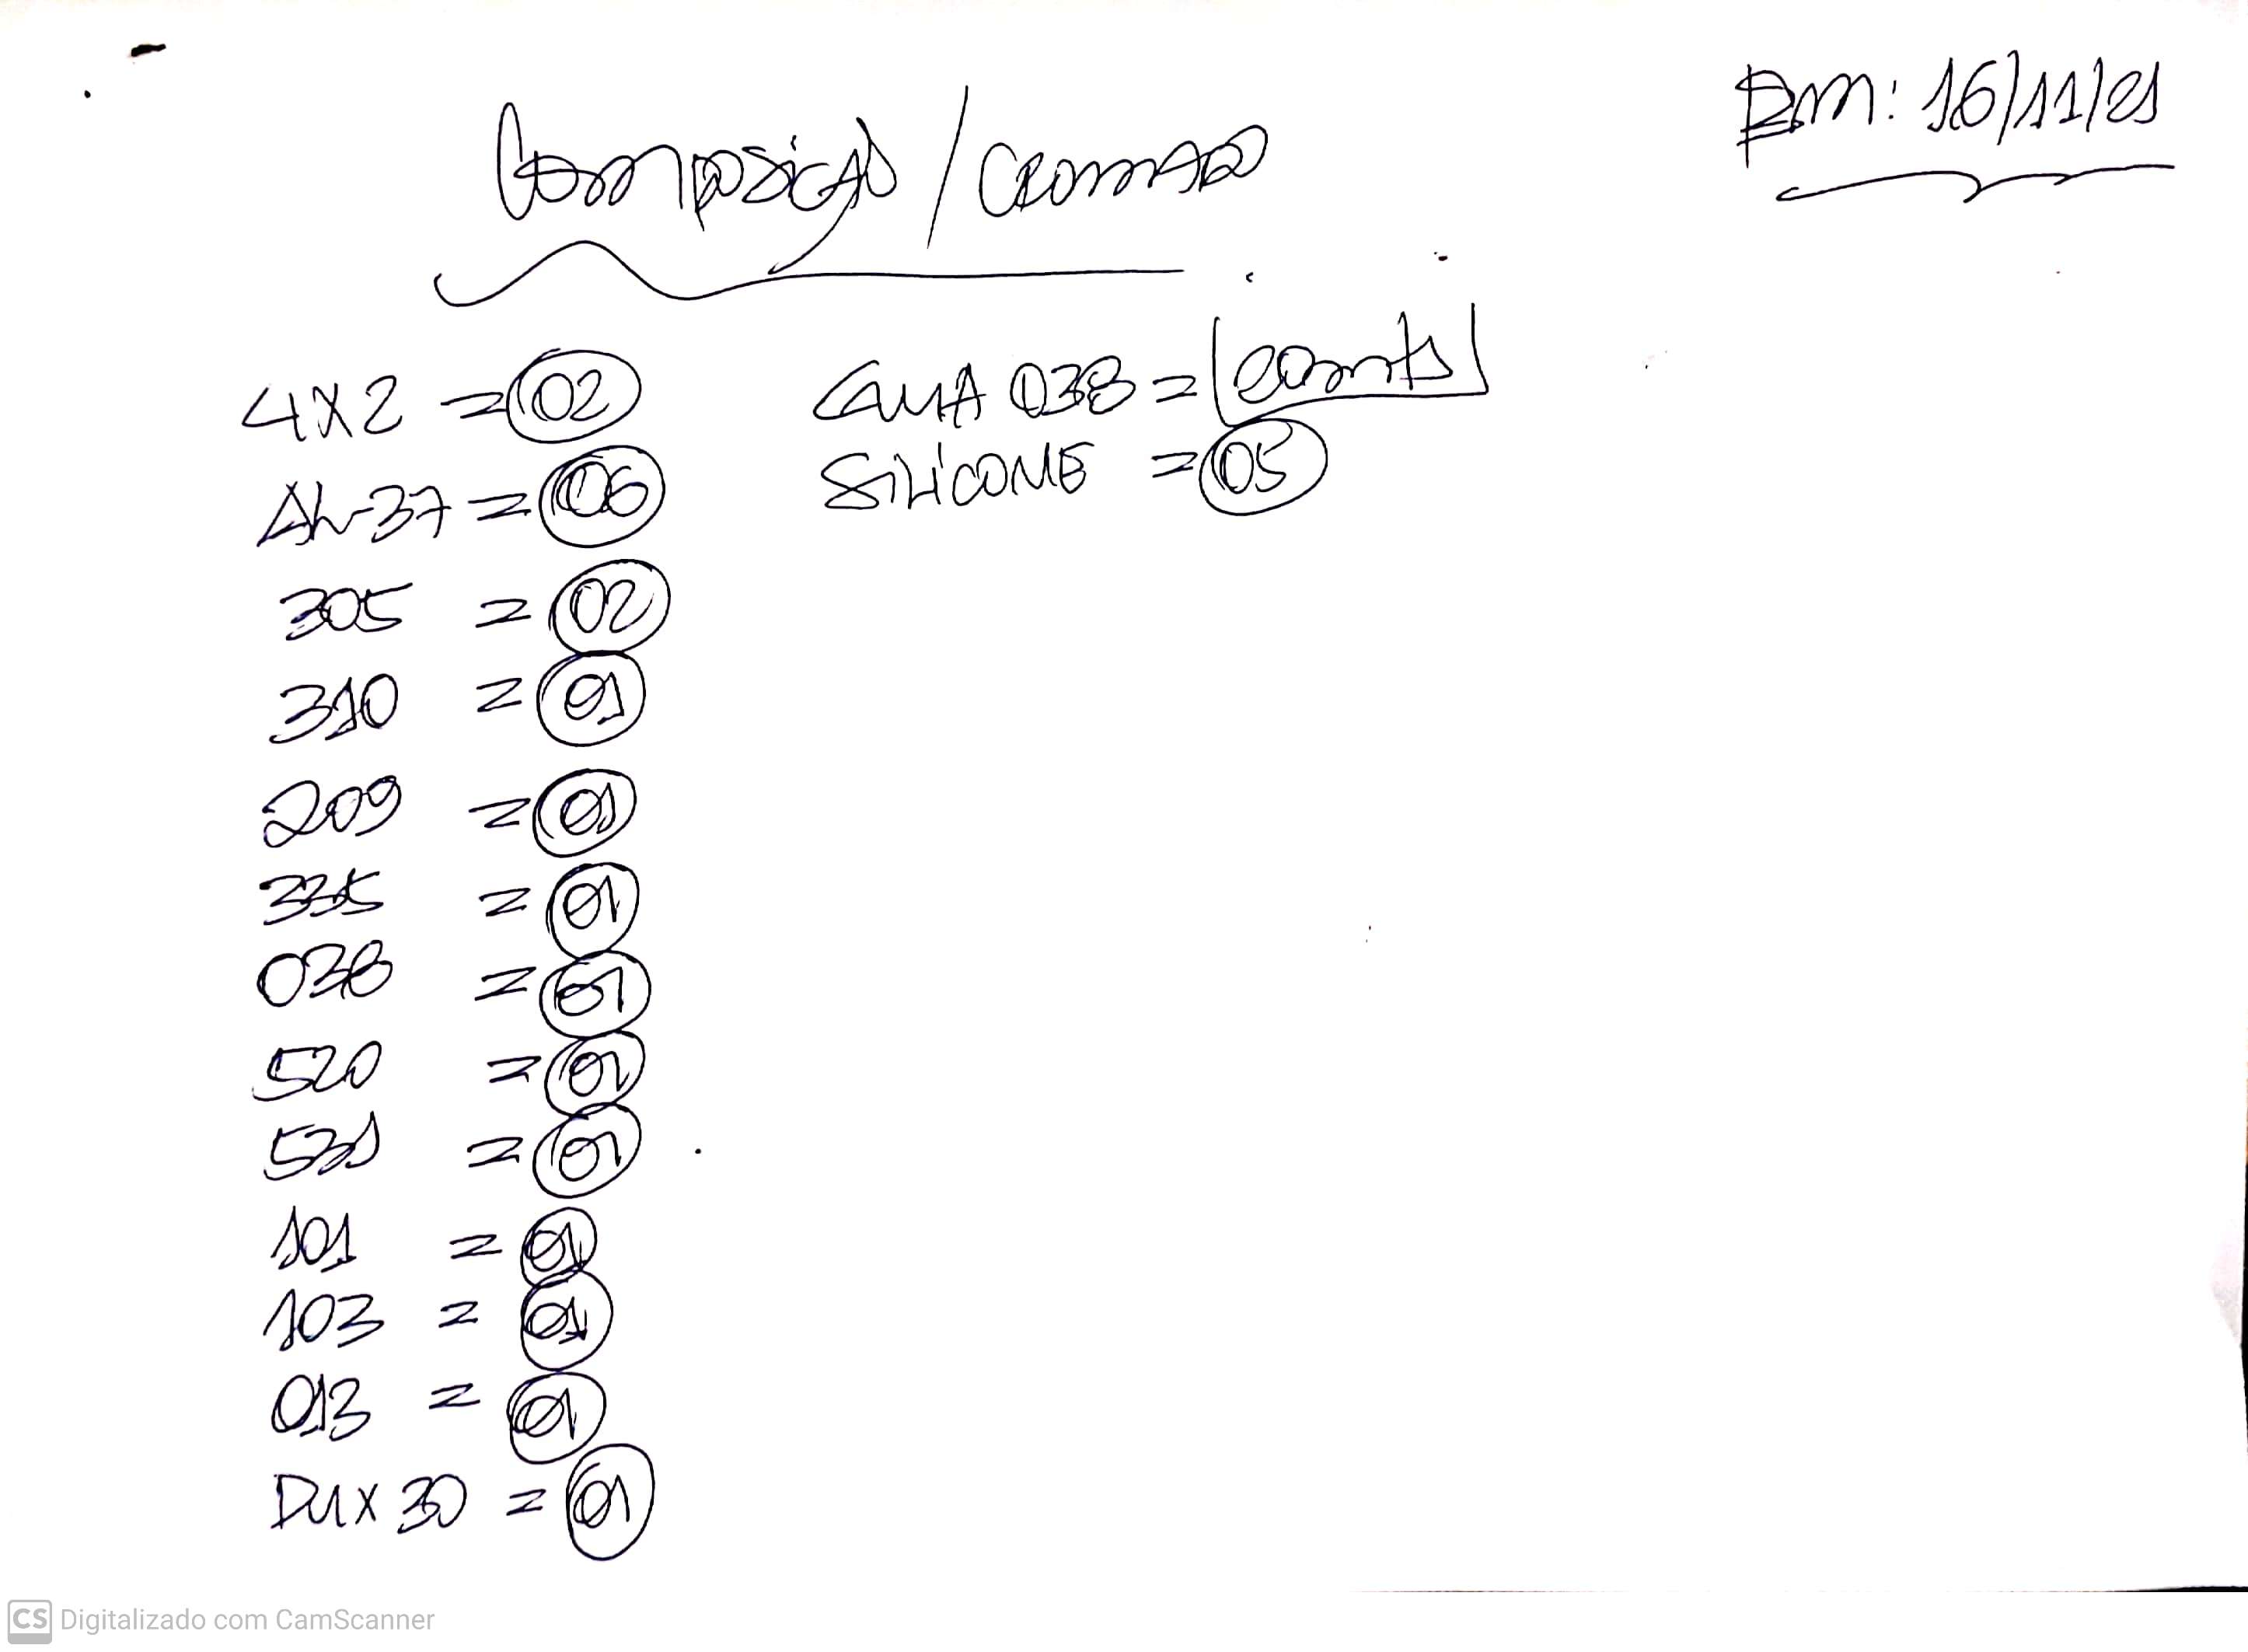 Em: 16/11/21
Composição /
4X2 = 02
AL-37 = 06
305 = 02
310 = 01
209 = 01
335 = 01
038 = 01
520 = 01
531 = 01
101 = 01
103 = 01
013 = 01
DUX 30 = 01
038 =
SILICONE = 05
CS Digitalizado com CamScanner